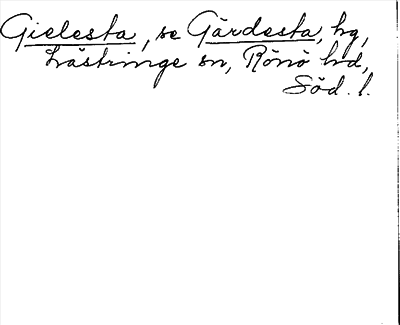 Gielesta, se Gärdesta, hg,
Lästringe sn, Rönö hd,
Söd. l.